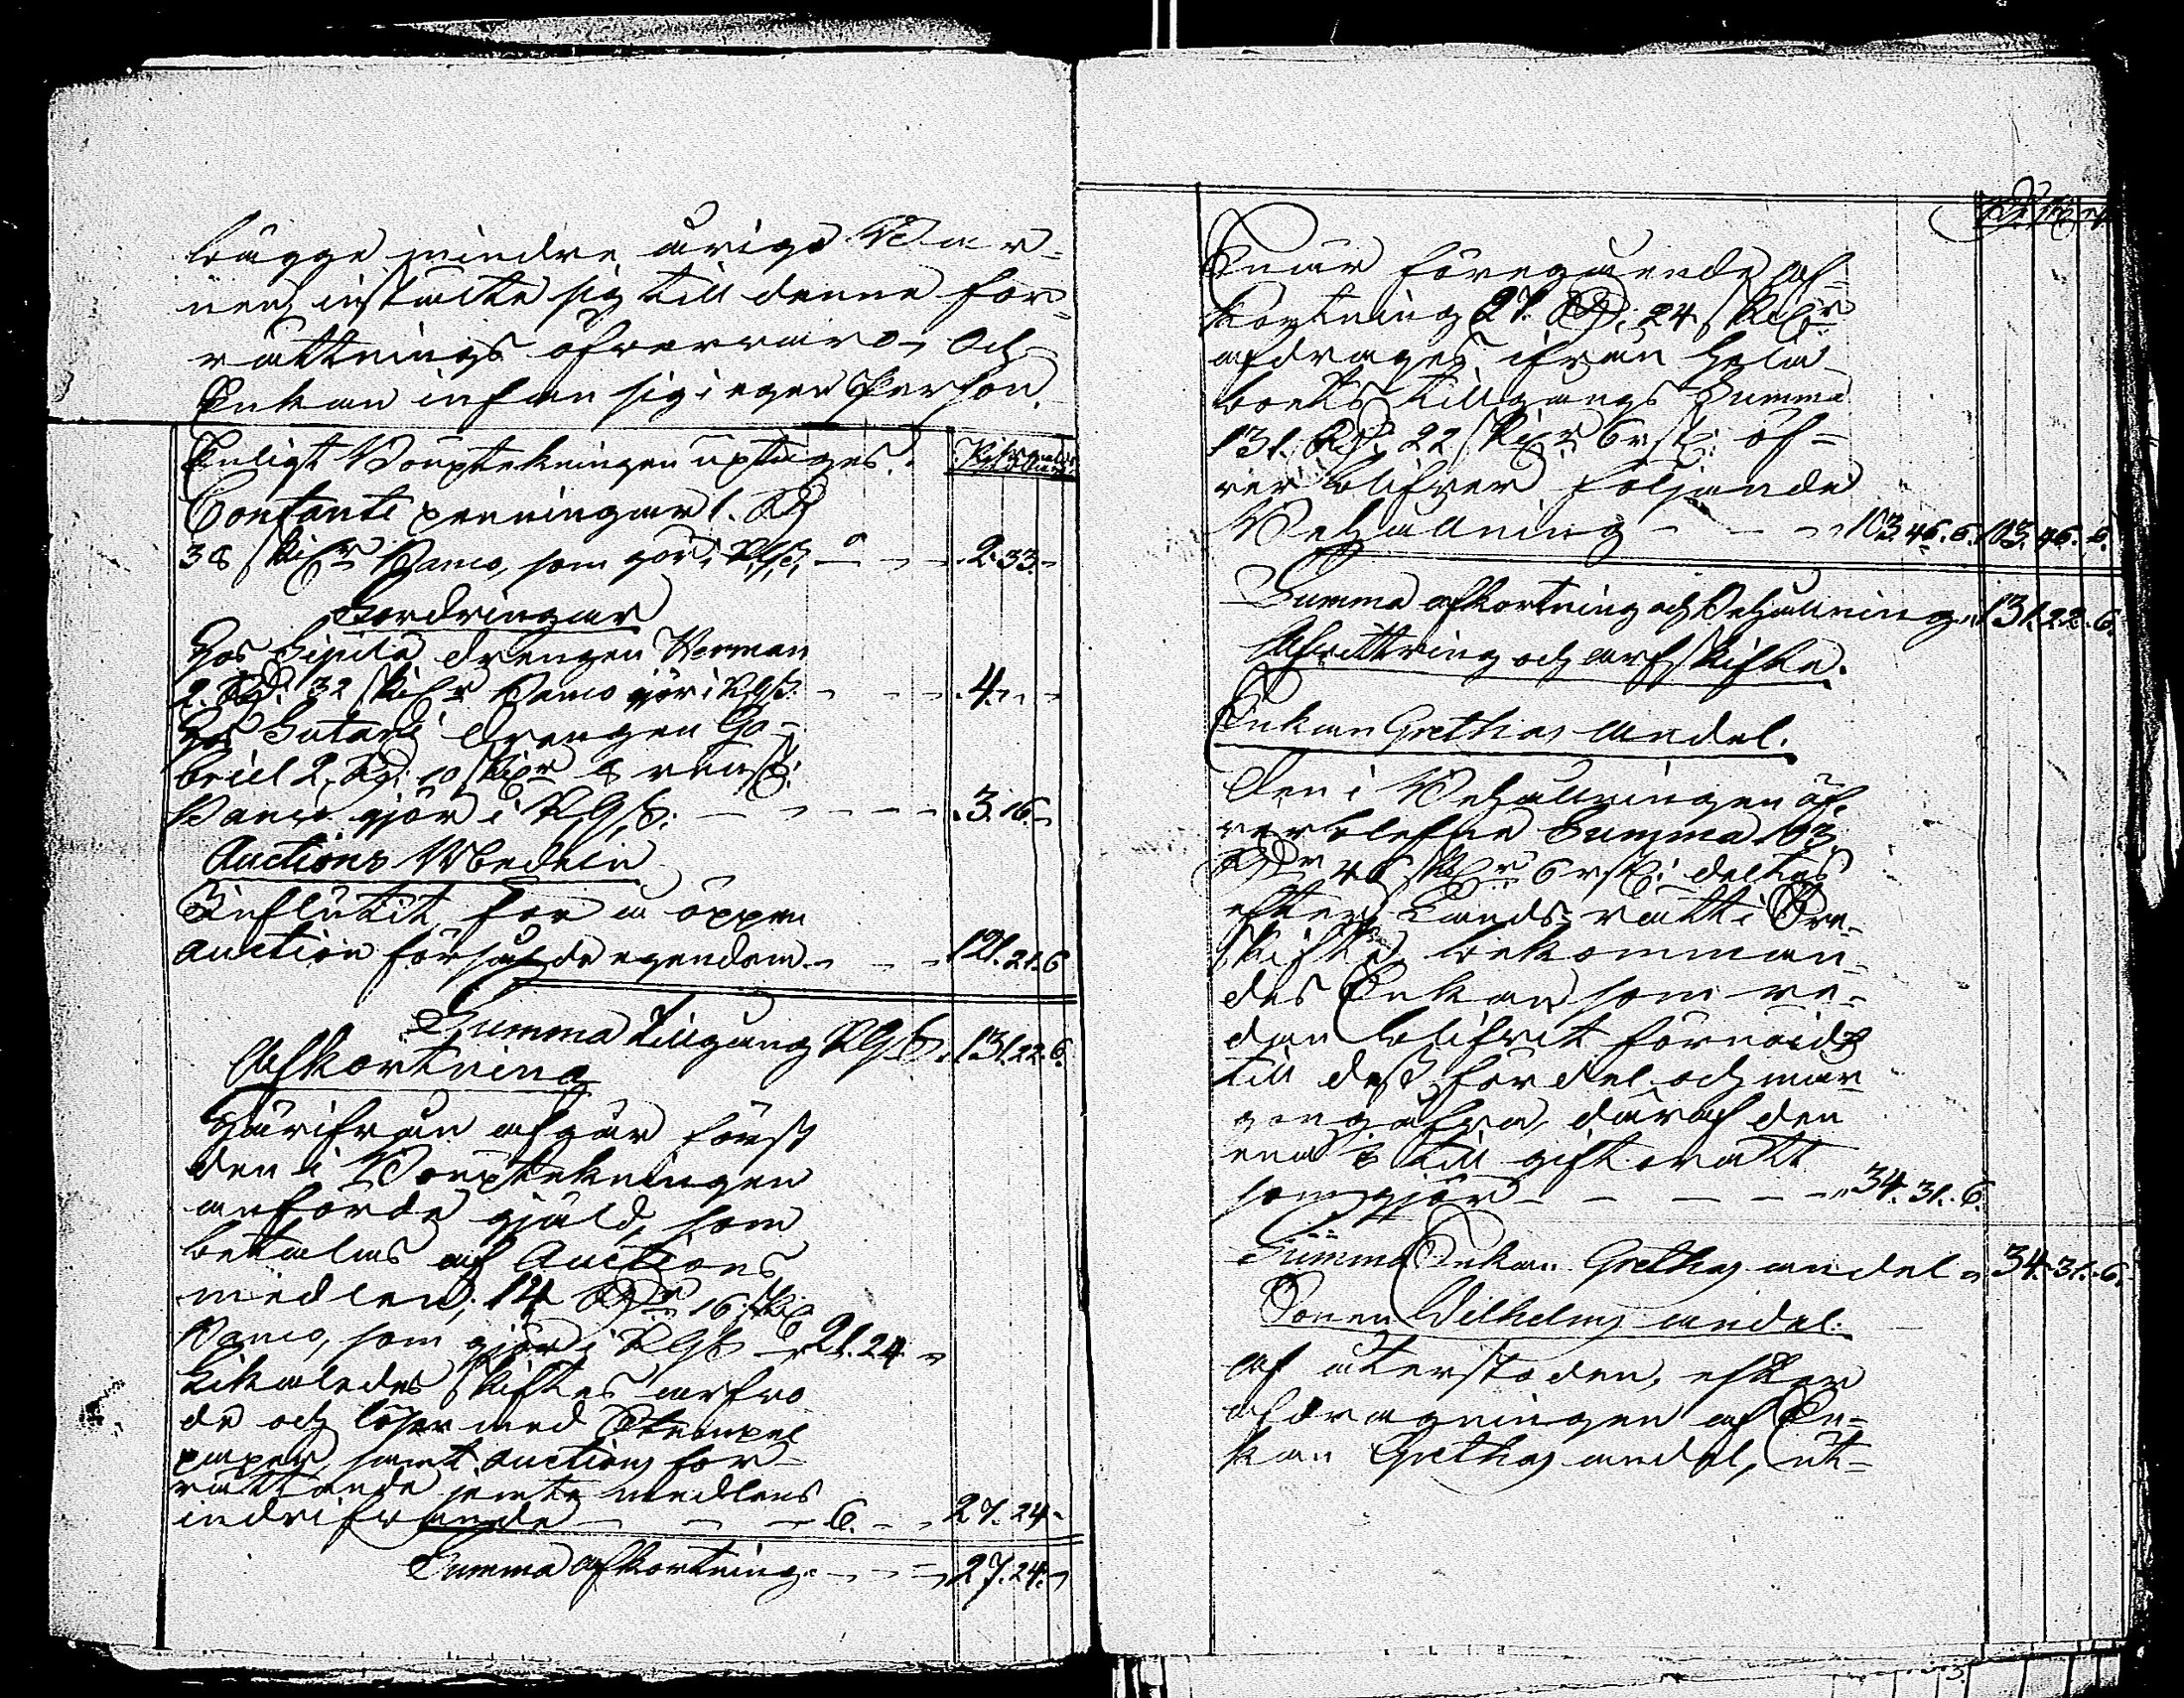 bägge mindre åriga Bar-
nen, instälte sig till denne för-
rättnings öfvervaro, och
Enkan infan sig i egen Person.
Enligt Bouptekningen uptages. Riksgälds
Contante penningar 1. Rd
38 skillr Banco, som gör i RGs. 2. 33.
Fordringar
Hos Sipilä drengen Herman
2. Rd: 32 skillr Banco gjör i RGs. 4.
Hos drengen Ga-
briel 2. Rd: 10 skillr 8 runst:
Banco gjör i RGs: 3. 16.
Auctions Medlen
Influtit för å öppen
auction försålde egendom 121. 21. 6
Summa Tillgång RGs. 131. 22. 6.
Afkortning
Härifrån afgår först
den i Bouptekningen
anförda gjäld, som
betalas af Auctions
medlen, 14 Rdr 16 skil
Banco, som gjör i RGs 21. 24
Likaledes skiftes arfvo
de och lösen med Stempel
paper, samt auctions för-
rättande jemte medlens
indrifvande 6. 27. 24
Summa afkortning 27. 24.
Enär föregående af-
kortning 27. Rd: 24 skillr
afdrages ifrån hela
boets tillgångs Summa
131. Rd: 22 skillr 6 rst: öf-
ver blifver följande
Behållning 103. 46. 6. 103. 46. 6.
Summa afkortning och Behållning 131. 22. 6.
Afvittring och arfskifte.
Enkan Grethas andel.
Den i Behållningen öf-
verblefne Summa 103
Rdr 46 skillr 6 rst: deltes
efter Lands rätt i Tre-
skifte, bekomman-
des Enkan som re-
dan blifvit förnöjd
till dess fördel och mår-
gongåfva, däraf den
ena ⅓ till giftorätt
som gjör 34. 31. 6.
Summa Enkan Grethas andel 34. 31. 6.
Sonen Wilhelms andel.
Af återstoden, efter
afdragningen af En-
kan Grethas andel, ut-